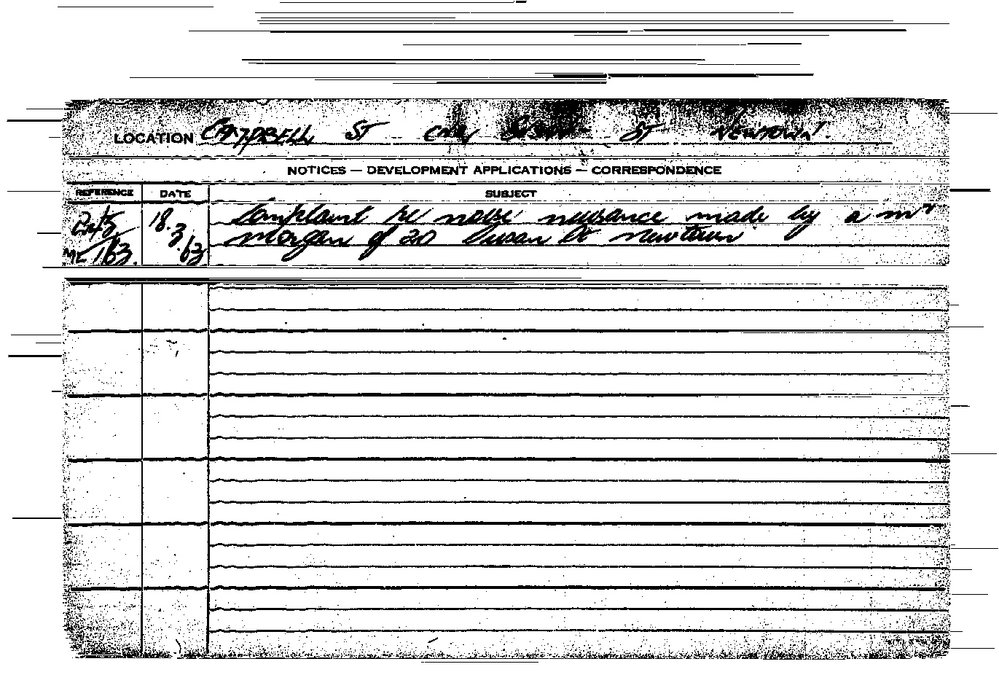 LOCATION CAMPBELL ST CNR SUSAN ST NEWTOWN.
NOTICES — DEVELOPMENT APPLICATIONS — CORRESPONDENCE
REFERENCE DATE SUBJECT
18.3 Complaint re noise nuisance made by a Mr
/63. /63 Morgan of 20 Susan St Newtown